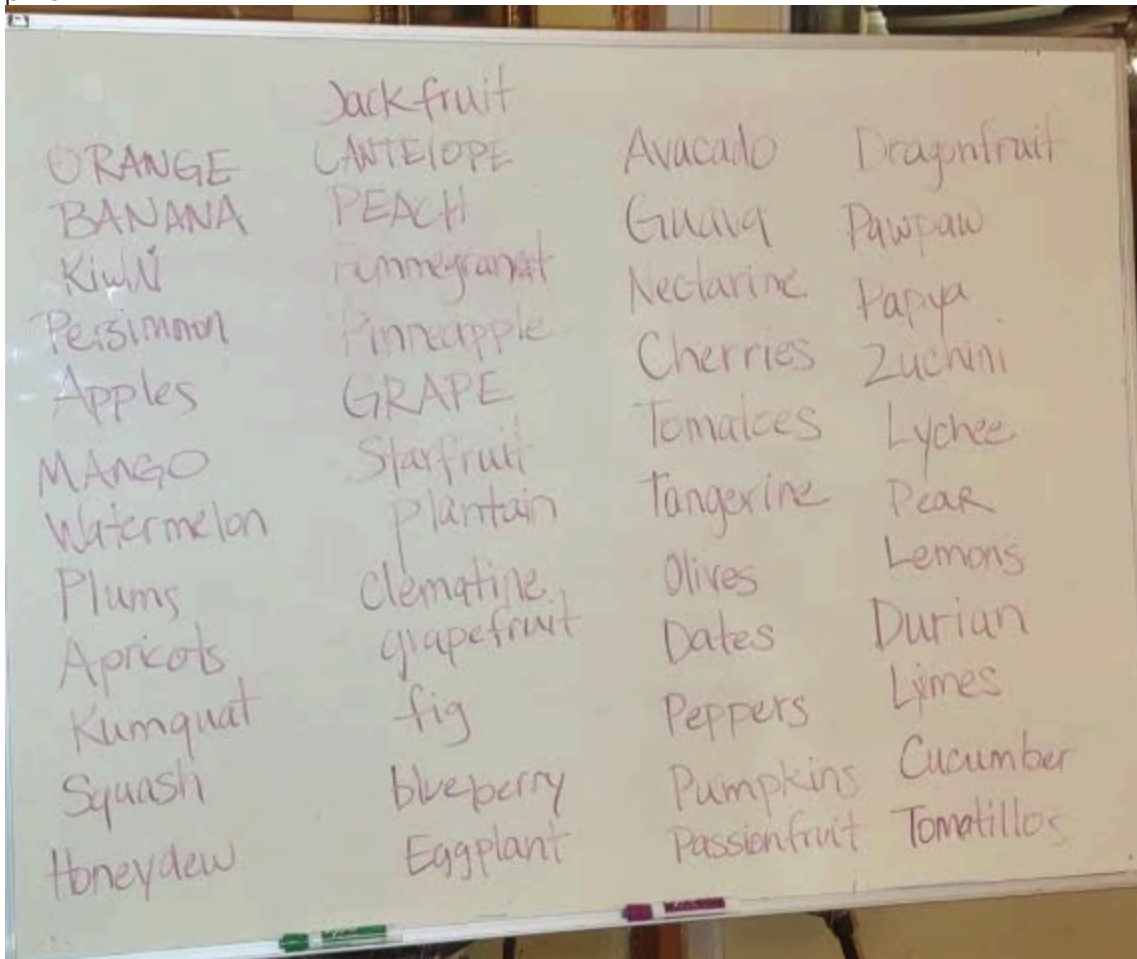 Jackfruit
ORANGE
BANANA
KiwN
Persimmon
Apples
MANGO
Watermelon
Plums
Apricots
Kumquat
Squash
Honeydew
CANTELOPE
PEACH
Pummegranat
Pinneapple
GRAPE
Starfruit
plantain
clematine
grapefruit
fig
blueberry
Eggplant
Avacado
Guava
Nectarine
Cherries
Tomatoes
Tangerine
Olives
Dates
Peppers
Pumpkins
Passionfruit
Dragonfruit
Pawpaw
Papya
Zuchini
Lychee
Pear
Lemons
Durian
Lymes
Cucumber
Tomatillos